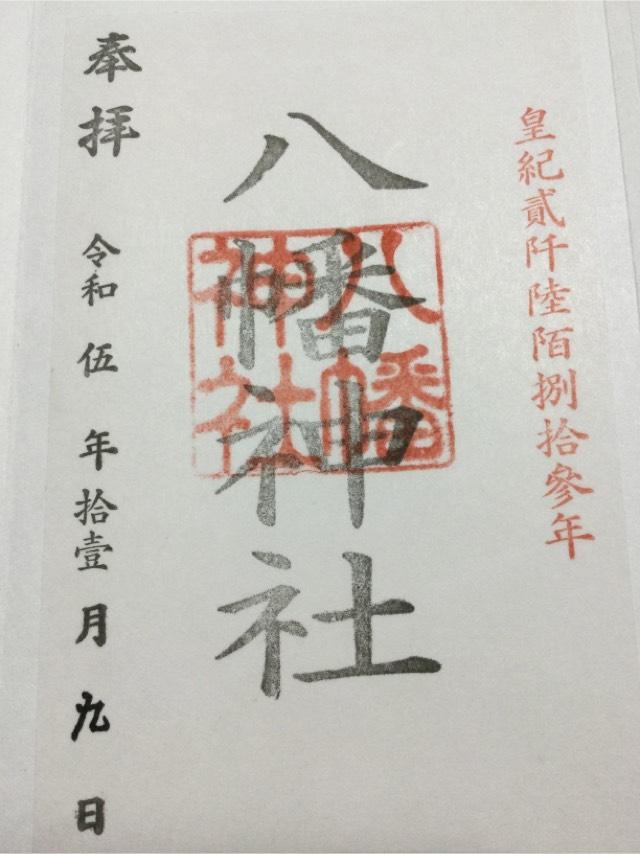 皇紀貳阡陸陌捌拾參年
八幡神社
八幡
神社
奉拝
令和伍年拾壹月九日